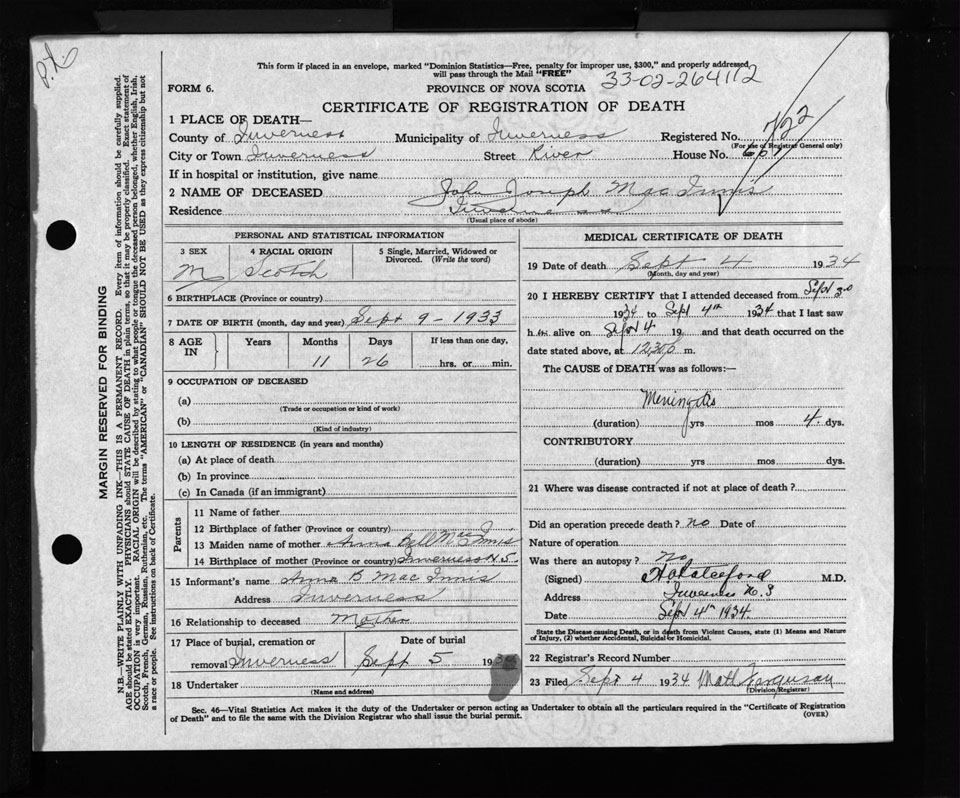 P.L.
This form if placed in an envelope, marked "Dominion Statistics—Free, penalty for improper use, $300," and properly addressed,
will pass through the Mail "FREE"
33-02-264112
FORM 6.
PROVINCE OF NOVA SCOTIA
CERTIFICATE OF REGISTRATION OF DEATH
1 PLACE OF DEATH—
County of Inverness Municipality of Inverness Registered No. 722
(For use of Registrar General only)
City or Town Inverness Street River House No.
If in hospital or institution, give name
2 NAME OF DECEASED John Joseph Mac Innis
Residence Inverness
(Usual place of abode)
PERSONAL AND STATISTICAL INFORMATION
3 SEX 4 RACIAL ORIGIN 5 Single, Married, Widowed or Divorced. (Write the word)
M Scotch
6 BIRTHPLACE (Province or country)
7 DATE OF BIRTH (month, day and year) Sept 9 - 1933
8 AGE IN Years Months Days If less than one day,
11 26 hrs. or min.
9 OCCUPATION OF DECEASED
(a)
(Trade or occupation or kind of work)
(b)
(Kind of industry)
10 LENGTH OF RESIDENCE (in years and months)
(a) At place of death
(b) In province
(c) In Canada (if an immigrant)
Parents
11 Name of father
12 Birthplace of father (Province or country)
13 Maiden name of mother Anna Bell Mac Innis
14 Birthplace of mother (Province or country) Inverness N S.
15 Informant's name Anna B Mac Innis
Address Inverness
16 Relationship to deceased Mother
17 Place of burial, cremation or Date of burial
removal Inverness Sept 5 1934
18 Undertaker
(Name and address)
MEDICAL CERTIFICATE OF DEATH
19 Date of death Sept 4 1934
(Month, day and year)
20 I HEREBY CERTIFY that I attended deceased from Sept 3rd
1934 to Sept 4th 1934 that I last saw
h im alive on Sept 4 19 and that death occurred on
date stated above, at m.
The CAUSE of DEATH was as follows:—
Meningitis
(duration) yrs mos 4 dys.
CONTRIBUTORY
(duration) yrs mos dys.
21 Where was disease contracted if not at place of death?
Did an operation precede death? no Date of
Nature of operation
Was there an autopsy? No
(Signed) M.D.
Address Inverness N. S
Date Sept 4th 1934.
State the Disease causing Death, or in death from Violent Causes, state (1) Means and Nature
of Injury, (2) whether Accidental, Suicidal or Homicidal.
22 Registrar's Record Number
23 Filed Sept 4 1934 Matt Ferguson
(Division Registrar)
Sec. 46—Vital Statistics Act makes it the duty of the Undertaker or person acting as Undertaker to obtain all the particulars required in the "Certificate of Registration
of Death" and to file the same with the Division Registrar who shall issue the burial permit. (OVER)
MARGIN RESERVED FOR BINDING
N.B.—WRITE PLAINLY WITH UNFADING INK—THIS IS A PERMANENT RECORD. Every item of information should be carefully supplied.
AGE should be stated EXACTLY. PHYSICIANS should STATE CAUSE OF DEATH in plain terms, so that it may be properly classified. Exact statement of
OCCUPATION is very important. RACIAL ORIGIN will be described by stating to what people or tongue the deceased person belonged, whether English, Irish,
Scotch, French, German, Russian, Ruthenian, etc. The terms "AMERICAN" or "CANADIAN" SHOULD NOT BE USED as they express citizenship but not
a race or people. See instructions on back of Certificate.